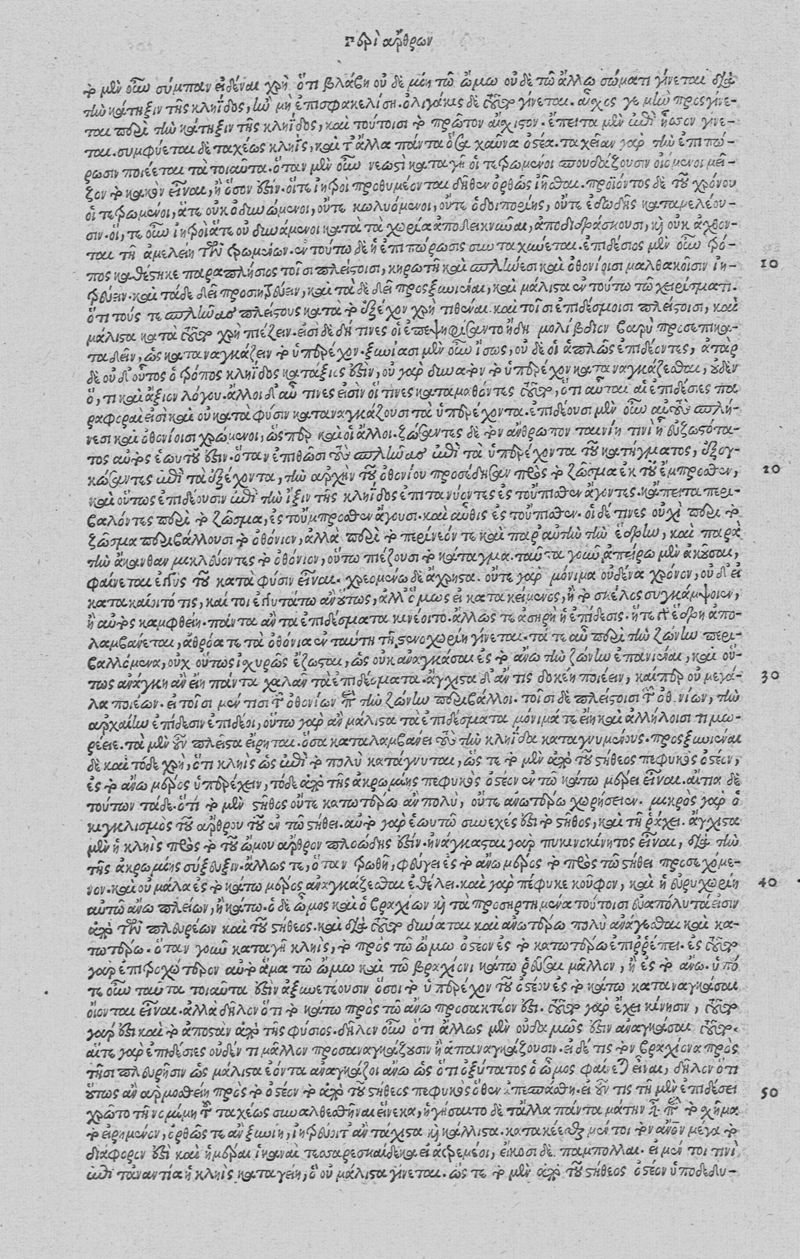 Περὶ ἄρθρων
τὸ μὲν οὖν σύμπαν εἰδέναι χρὴ ὅτι βλάβη οὐδὲ μίη τῷ ὤμῳ οὐδὲ τῷ ἄλλῳ σώματι γίνεται διὰ
τὴν κάτηξιν τῆς κληῗδος, ἢν μὴ ἐπισφακελίσῃ. ὀλιγάκις δὲ τοῦτο γίνεται. αἶσχος γε μὴν προσγίνε-
ται περὶ τὴν κάτηξιν τῆς κληῗδος, καὶ τούτοισι τὸ πρῶτον αἴσχιστον. ἔπειτα μὲν ἐπὶ ἧσσον γίνε-
ται. συμφύεται δὲ ταχέως κληῒς, καὶ τἄλλα πάντα ὅσα χαῦνα ὀστέα. ταχεῖαν γὰρ τὴν ἐπιπώ-
ρωσιν ποιέεται τὰ τοιαῦτα. ὅταν μὲν οὖν νεωστὶ καταγῇ οἱ τετρωμένοι σπουδάζουσιν οἰόμενοι μεῖ-
ζον τὸ κακὸν εἶναι, ἢ ὅσον ἐστίν. οἵτε ἰητροὶ προθυμέονται δῆθεν ὀρθῶς ἰῆσθαι. προϊόντος δὲ τοῦ χρόνου
οἱ τετρωμένοι, ἅτε οὐκ ὀδυνώμενοι, οὔτε κωλυόμενοι, οὔτε ὁδοιπορίης, οὔτε ἐδωδῆς καταμελέου-
σιν. οἵ, τε οὖν ἰητροὶ ἅτε οὐ δυνάμενοι καλὰ τὰ χωρία ἀποδεικνύναι, ἀποδιδράσκουσι, κὴ οὐκ ἄχθον-
ται τῇ ἀμελείῃ τῶν τρωμένων. ἐν τούτῳ δὲ ἡ ἐπιπώρωσις συνταχύνεται. ἐπιδέσιος μὲν οὖν τρό-
πος καθέστηκε παραπλήσιος τοῖσι πλείστοισι, κηρωτῇ καὶ σπλήνεσι καὶ ὀθονίοισι μαλθακοῖσιν ἰη-
τρεύειν. καὶ τάδε δεῖ προσξυνιέναι, καὶ μάλιστα ἐν τούτῳ τῷ χειρίσματι.
ὅτι τούς τε σπλῆνας πλείστους κατὰ τὸ ἐξέχον χρὴ τιθέναι. καὶ τοῖσι ἐπιδέσμοισι πλείστοισι, καὶ
μάλιστα κατὰ τοῦτο χρὴ πιέζειν. εἰσὶ δὲ δή τινες οἳ ἐπεψηφίσαντο ἤδη μολίβδιον βαρὺ προσεπικα-
ταδεῖν, ὡς καταναγκάζειν τὸ ὑπερέχον. ξυνιᾶσι μὲν οὖν ἴσως, οὐδὲ οἱ ἁπλῶς ἐπιδέοντες, ἀτὰρ
δὲ οὐδ' οὗτος ὁ τρόπος κληῗδος κατάξιός ἐστιν, οὐ γὰρ δυνατὸν τὸ ὑπερέχον καταναγκάζεσθαι, οὐδὲν
ὅ, τι καὶ ἄξιον λόγου. ἄλλοι δ' αὖ τινές εἰσιν οἵ τινες καταμαθόντες τοῦτο, ὅτι αὗται αἱ ἐπιδέσιες πα
ράφοραί εἰσι καὶ οὐ κατὰ φύσιν καταναγκάζουσι τὰ ὑπερέχοντα. ἐπιδέουσι μὲν οὖν αὐτοὺς σπλή-
νεσι καὶ ὀθονίοισι χρώμενοι, ὥσπερ καὶ οἱ ἄλλοι. ζώσαντες δὲ τὸν ἄνθρωπον ταινίῃ τινὶ ᾗ εὐζωστότα-
τος αὐτὸς ἑωυτοῦ ἐστιν. ὅταν ἐπιθῶσι τοὺς σπλῆνας ἐπὶ τὰ ὑπερέχοντα τοῦ κατήγματος, ἐξογ-
κώσαντες ἐπὶ τὰ ἐξέχοντα, τὴν ἀρχὴν τοῦ ὀθονίου προσέδησαν πρὸς τὸ ζῶσμα ἐκ τοῦ ἔμπροσθεν,
καὶ οὕτως ἐπιδέουσιν ἐπὶ τὴν ἴξιν τῆς κληῗδος ἐπιτανύοντες ἐς τοὔπισθεν ἄγοντες. κἄπειτα περι-
βαλόντες περὶ τὸ ζῶσμα, ἐς τοὔμπροσθεν ἄγουσι. καὶ αὖθις ἐς τοὔπισθεν. οἱ δέ τινες οὐχὶ περὶ τὸ
ζῶσμα περιβάλλουσι τὸ ὀθόνιον, ἀλλὰ περὶ τὸ περίνεόν τε καὶ παρ' αὐτὴν τὴν ἕδρην, καὶ παρὰ
τὴν ἄκανθαν κυκλεύοντες τὸ ὀθόνιον, οὕτω πιέζουσι τὸ κάταγμα. ταῦτα γοῦν ἀπείρῳ μὲν ἀκοῦσαι,
φαίνεται ἐγγὺς τοῦ κατὰ φύσιν εἶναι. χρεομένῳ δὲ ἄχρηστα. οὔτε γὰρ μόνιμα οὐδένα χρόνον, οὐδ' εἰ
κατακαίοιτό τις, καί τοι ἐγγυτάτω ἂν οὕτως, ἀλλ' ὅμως εἰ κατακείμενος, ἢ τὸ σκέλος συγκάμψειεν,
ἢ αὐτὸς καμφθείη. πάντα ἂν τὰ ἐπιδέσματα κινέοιτο. ἄλλως τε ἀσηρὴ ἡ ἐπίδεσις. ἥτε γὰρ ἕδρη ἀπο-
λαμβάνεται, ἀθρόα τε τὰ ὀθόνια ἐν ταύτῃ τῇ στενοχωρίῃ γίνεται. τά τε αὖ περὶ τὴν ζώνην περι-
βαλλόμενα, οὐχ οὕτως ἰσχυρῶς ἔζωσται, ὡς οὐκ ἀναγκάσαι ἐς τὸ ἄνω τὴν ζώνην ἐπανιέναι, καὶ οὕ-
τως ἀνάγκη ἂν εἴη πάντα χαλᾶν τὰ ἐπιδέσματα. ἄγχιστα δ' ἄν τις δοκέῃ ποιέειν, καίπερ οὐ μεγά-
λα ποιέων. εἰ τοῖσι μέν τισι τῶν ὀθονίων περὶ τὴν ζώνην περιβάλλοι. τοῖσι δὲ πλείστοισι τῶν ὀθονίων, τὴν
ἀρχαίην ἐπίδεσιν ἐπιδέοι, οὕτω γὰρ ἂν μάλιστα τὰ ἐπιδέσματα μόνιμά τε εἴη καὶ ἀλλήλοισι τιμω-
ρέειε. τὰ μὲν οὖν πλεῖστα εἴρηται. ὅσα καταλαμβάνει τοὺς τὴν κληῗδα καταγνυμένους. προσξυνιέναι
δὲ καὶ τόδε χρὴ, ὅτι κληῒς ὡς ἐπὶ τὸ πολὺ κατάγνυται, ὥς τε τὸ μὲν ἀπὸ τοῦ στήθεος πεφυκὸς ὀστέον,
ἐς τὸ ἄνω μέρος ὑπερέχειν, τόδε ἀπὸ τῆς ἀκρωμίης πεφυκὸς ὀστέον ἐν τῷ κάτω μέρει εἶναι. αἴτια δὲ
τούτων τάδε. ὅτι τὸ μὲν στῆθος οὔτε κατωτέρω ἂν πολὺ, οὔτε ἀνωτέρω χωρήσειεν. μικρὸς γὰρ ὁ
κιγκλισμὸς τοῦ ἄρθρου τοῦ ἐν τῷ στήθει. αὐτὸ γὰρ ἑωυτῷ συνεχές ἐστι τὸ στῆθος, καὶ τῇ ῥάχει. ἄγχιστα
μὲν ἡ κληῒς πρὸς τοῦ ὤμου ἄρθρον πλοώδης ἐστίν. ἠνάγκασται γὰρ πυκινοκίνητος εἶναι, διὰ τὴν
τῆς ἀκρωμίης σύζευξιν. ἄλλως τε, ὅταν τρωθῇ, φεύγει ἐς τὸ ἄνω μέρος τὸ πρὸς τῷ στήθει προσεχόμε-
νον. καὶ οὐ μάλα ἐς τὸ κάτω μέρος ἀναγκάζεσθαι ἐθέλει. καὶ γὰρ πέφυκε κοῦφον, καὶ ἡ εὐρυχωρίη
αὐτῷ ἄνω πλείων, ἢ κάτω. ὁ δὲ ὦμος καὶ ὁ βραχίων κὴ τὰ προσηρτημένα τούτοισι εὐαπόλυτά εἰσιν
ἀπὸ τῶν πλευρέων καὶ τοῦ στήθεος. καὶ διὰ τοῦτο δύναται καὶ ἀνωτέρω πολὺ ἀνάγεσθαι καὶ κα-
τωτέρω. ὅταν γοῦν καταγῇ κληῒς, τὸ πρὸς τῷ ὤμῳ ὀστέον ἐς τὸ κατωτέρω ἐπιῤῥέπει. ἐς τοῦτο
γὰρ ἐπιτροχώτερον αὐτὸ ἅμα τῷ ὤμῳ καὶ τῷ βραχίονι κάτω ῥέψαι μᾶλλον, ἢ ἐς τὸ ἄνω. ὁπό
τε οὖν ταῦτα τοιαῦτά ἐστιν ἀξυνετέουσιν ὅσοι τὸ ὑπερέχον τοῦ ὀστέου ἐς τὸ κάτω καταναγκάσαι
οἴονται εἶναι. ἀλλὰ δῆλον ὅτι τὸ κάτω πρὸς τῷ ἄνω προσακτέον ἐστί. τοῦτο γὰρ ἔχει κίνησιν, τοῦτο
γάρ ἐστι καὶ τὸ ἀποστὰν ἀπὸ τῆς φύσιος. δῆλον οὖν ὅτι ἄλλως μὲν οὐδαμῶς ἐστιν ἀναγκάσαι τοῦτο.
αἵτε γὰρ ἐπιδέσιες οὐδέν τι μᾶλλον προσαναγκάζουσιν ἢ ἀπαναγκάζουσιν. εἰ δέ τις τὸν βραχίονα πρὸς
τῇσι πλευρῇσιν ὡς μάλιστα ἐόντα ἀναγκάζοι ἄνω ὡς ὅτι ὀξύτατος ὁ ὦμος φαίνεται εἶναι, δῆλον ὅτι
οὕτως ἂν ἁρμοσθείη πρὸς τὸ ὀστέον τὸ ἀπὸ τοῦ στήθεος πεφυκὸς ὅθεν ἀπεσπάσθη. εἰ οὖν τις τῇ μὲν ἐπιδέσει
χρῷτο τῇ νομίμῃ τοῦ ταχέως συναλθεσθῆναι εἵνεκα, ἡγήσαιτο δὲ τἄλλα πάντα μάτην εἶναι παρὰ τὸ σχῆμα
τὸ εἰρημένον, ὀρθῶς τε ἂν ξυνίῃ, ἰητρεύοιτ' ἂν τάχιστα κὴ κάλλιστα. κατακέεσθαι μέντοι τὸν ἄνθρωπον μέγα τὸ
διάφορόν ἐστι καὶ ἡμέραι ἱκαναὶ τεσσαρεσκαίδεκα εἰ ἀτρεμέοι, εἴκοσι δὲ πάμπολλαι. εἰ μέν τοι τινὶ
ἐπὶ τἀναντία ἡ κληῒς καταγείη, ὃ οὐ μάλιστα γίνεται. ὥς τε τὸ μὲν ἀπὸ τοῦ στήθεος ὀστέον ὑποδεδυ-
10
20
30
40
50